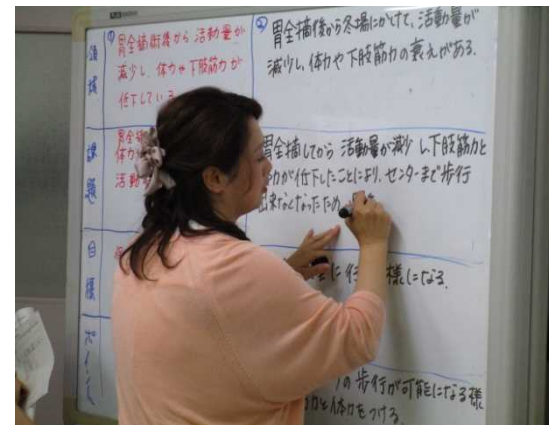 領域
①胃全摘術後から活動量が
減少し、体力や下肢筋力が
低下している
②胃全摘後から冬場にかけて、活動量が
減少し、体力や下肢筋力の衰えがある。
課題
胃全摘
体力
活動
胃全摘してから活動量が減少し、下肢筋力と
力が低下したことにより、センターまで歩行
出来なくなったため
目標
に行 様になる。
ポイント
の歩行が可能になる様
力と体力をつける。